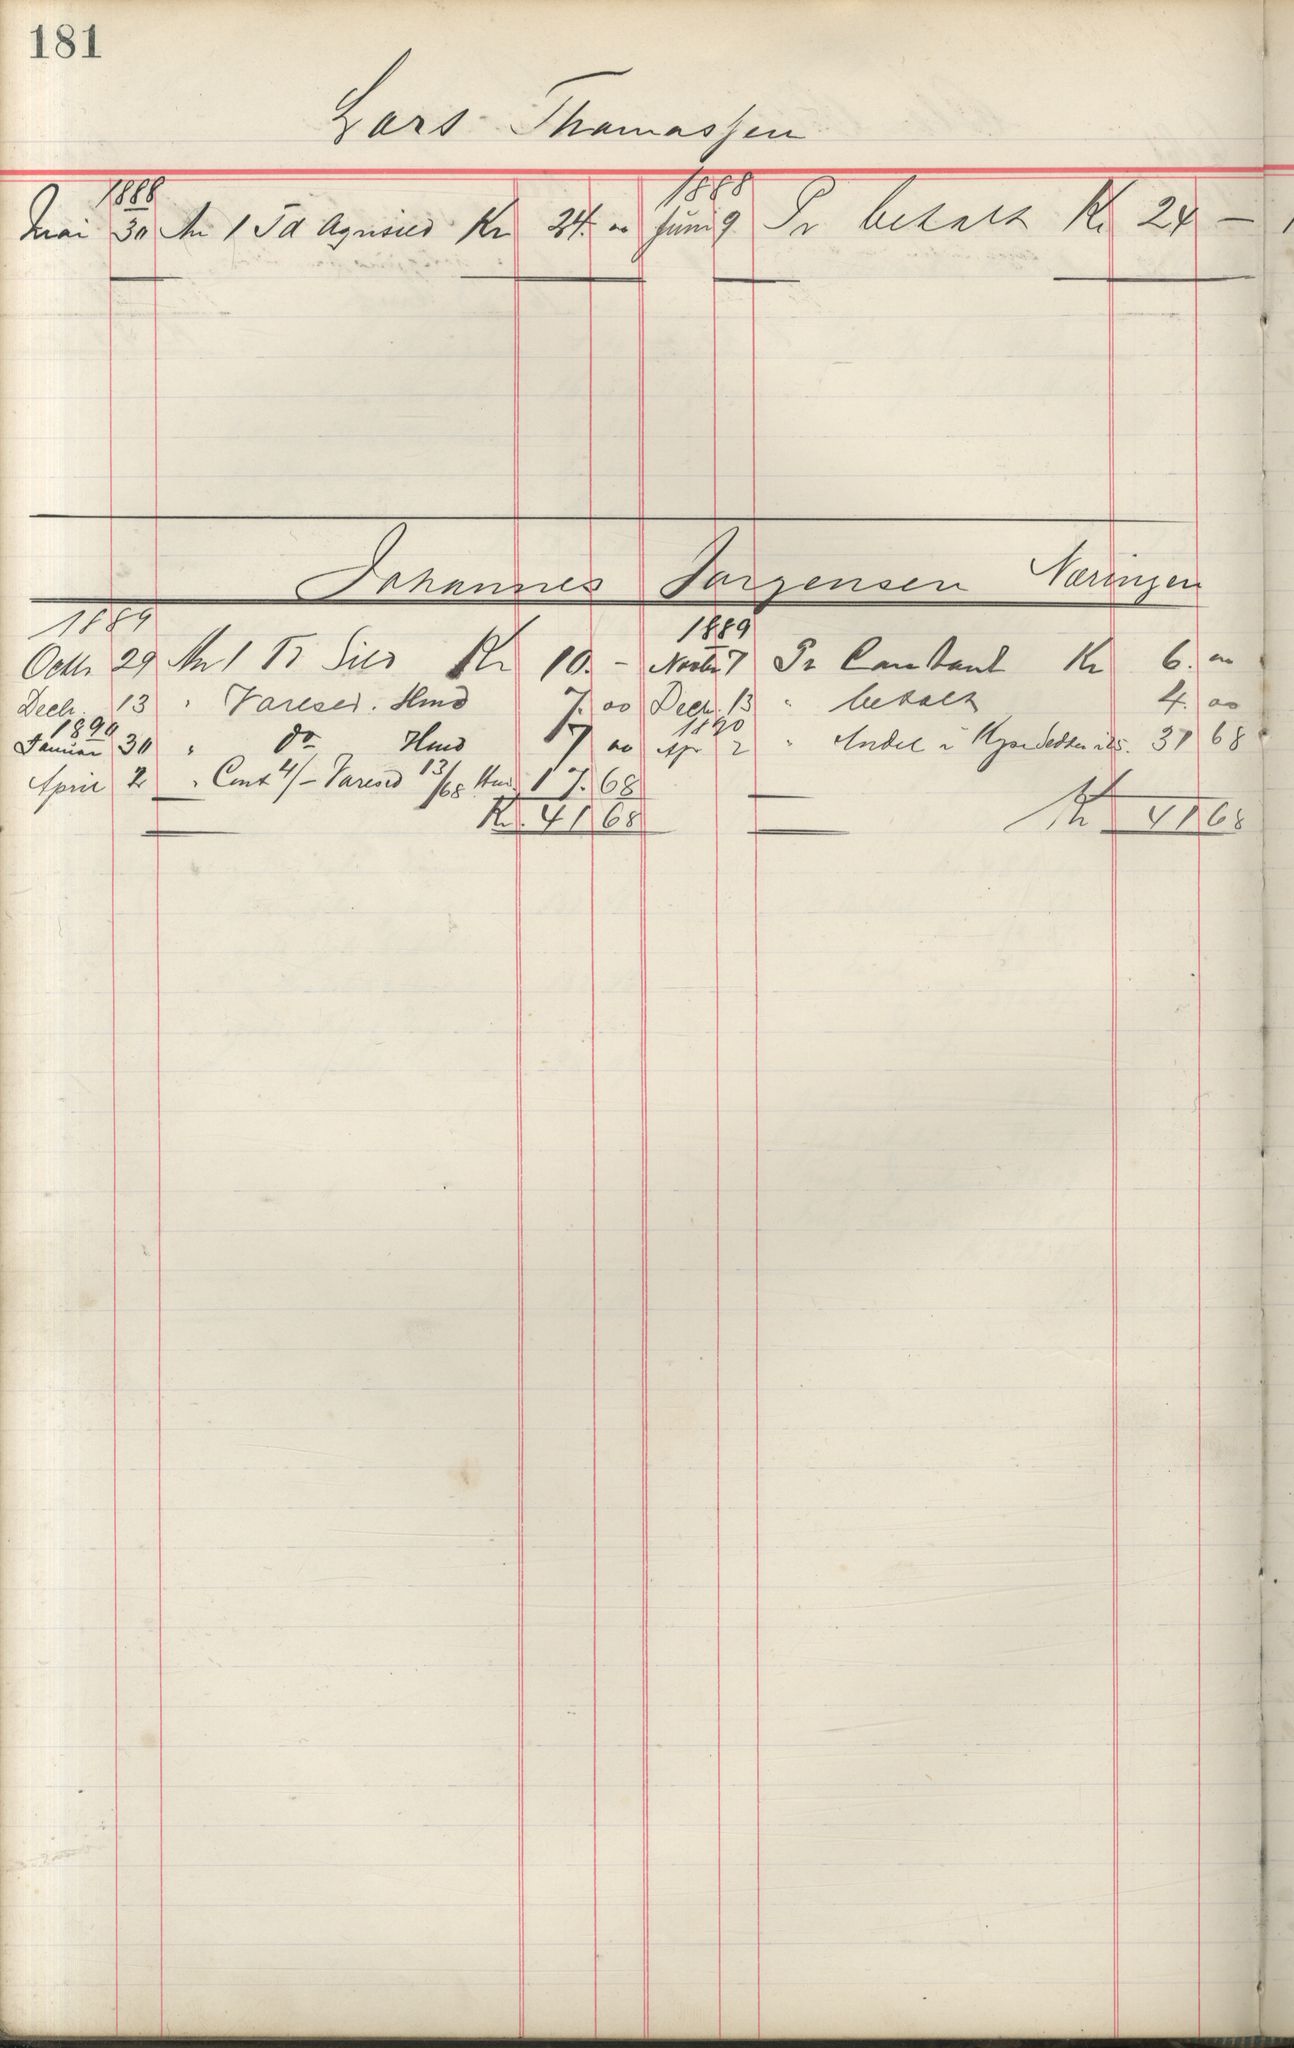 181
Lars Thomassen
1888 1888
Mai 30 An 1 Td Agnsild Kr 24. 00 Juni 9 Pr betalt Kr 24 —
Johannes Jørgensen Næringen
1889 1889
Octbr 29 An 1 Td Sild Kr 10. - Novbr 7 Pr Contant Kr 6. 00
Decbr. 13 " Varesed. Hmd 7. 00 Decbr. 13 " betalt 4. 00
1890 1890
Januar 30 " do Hmd 7 00 Apr 2 " Andel i 31 68
April 2 " Cont 4/- Varesed 13/68 17. 68
Kr. 41 68 Kr 41 68